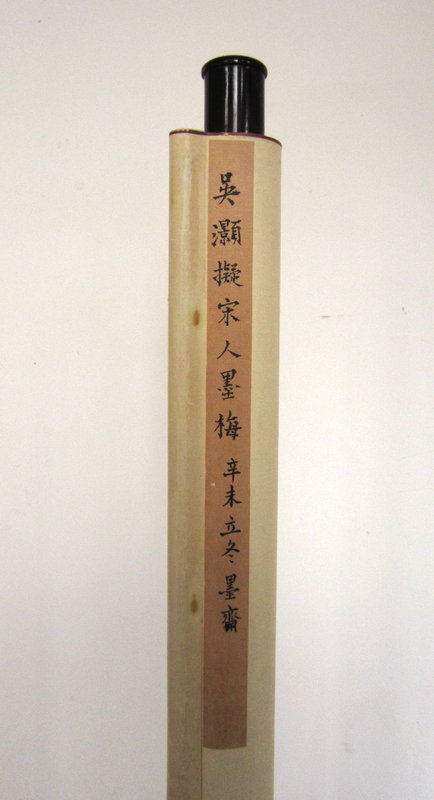 吳灝擬宋人墨梅 辛未立冬墨齋